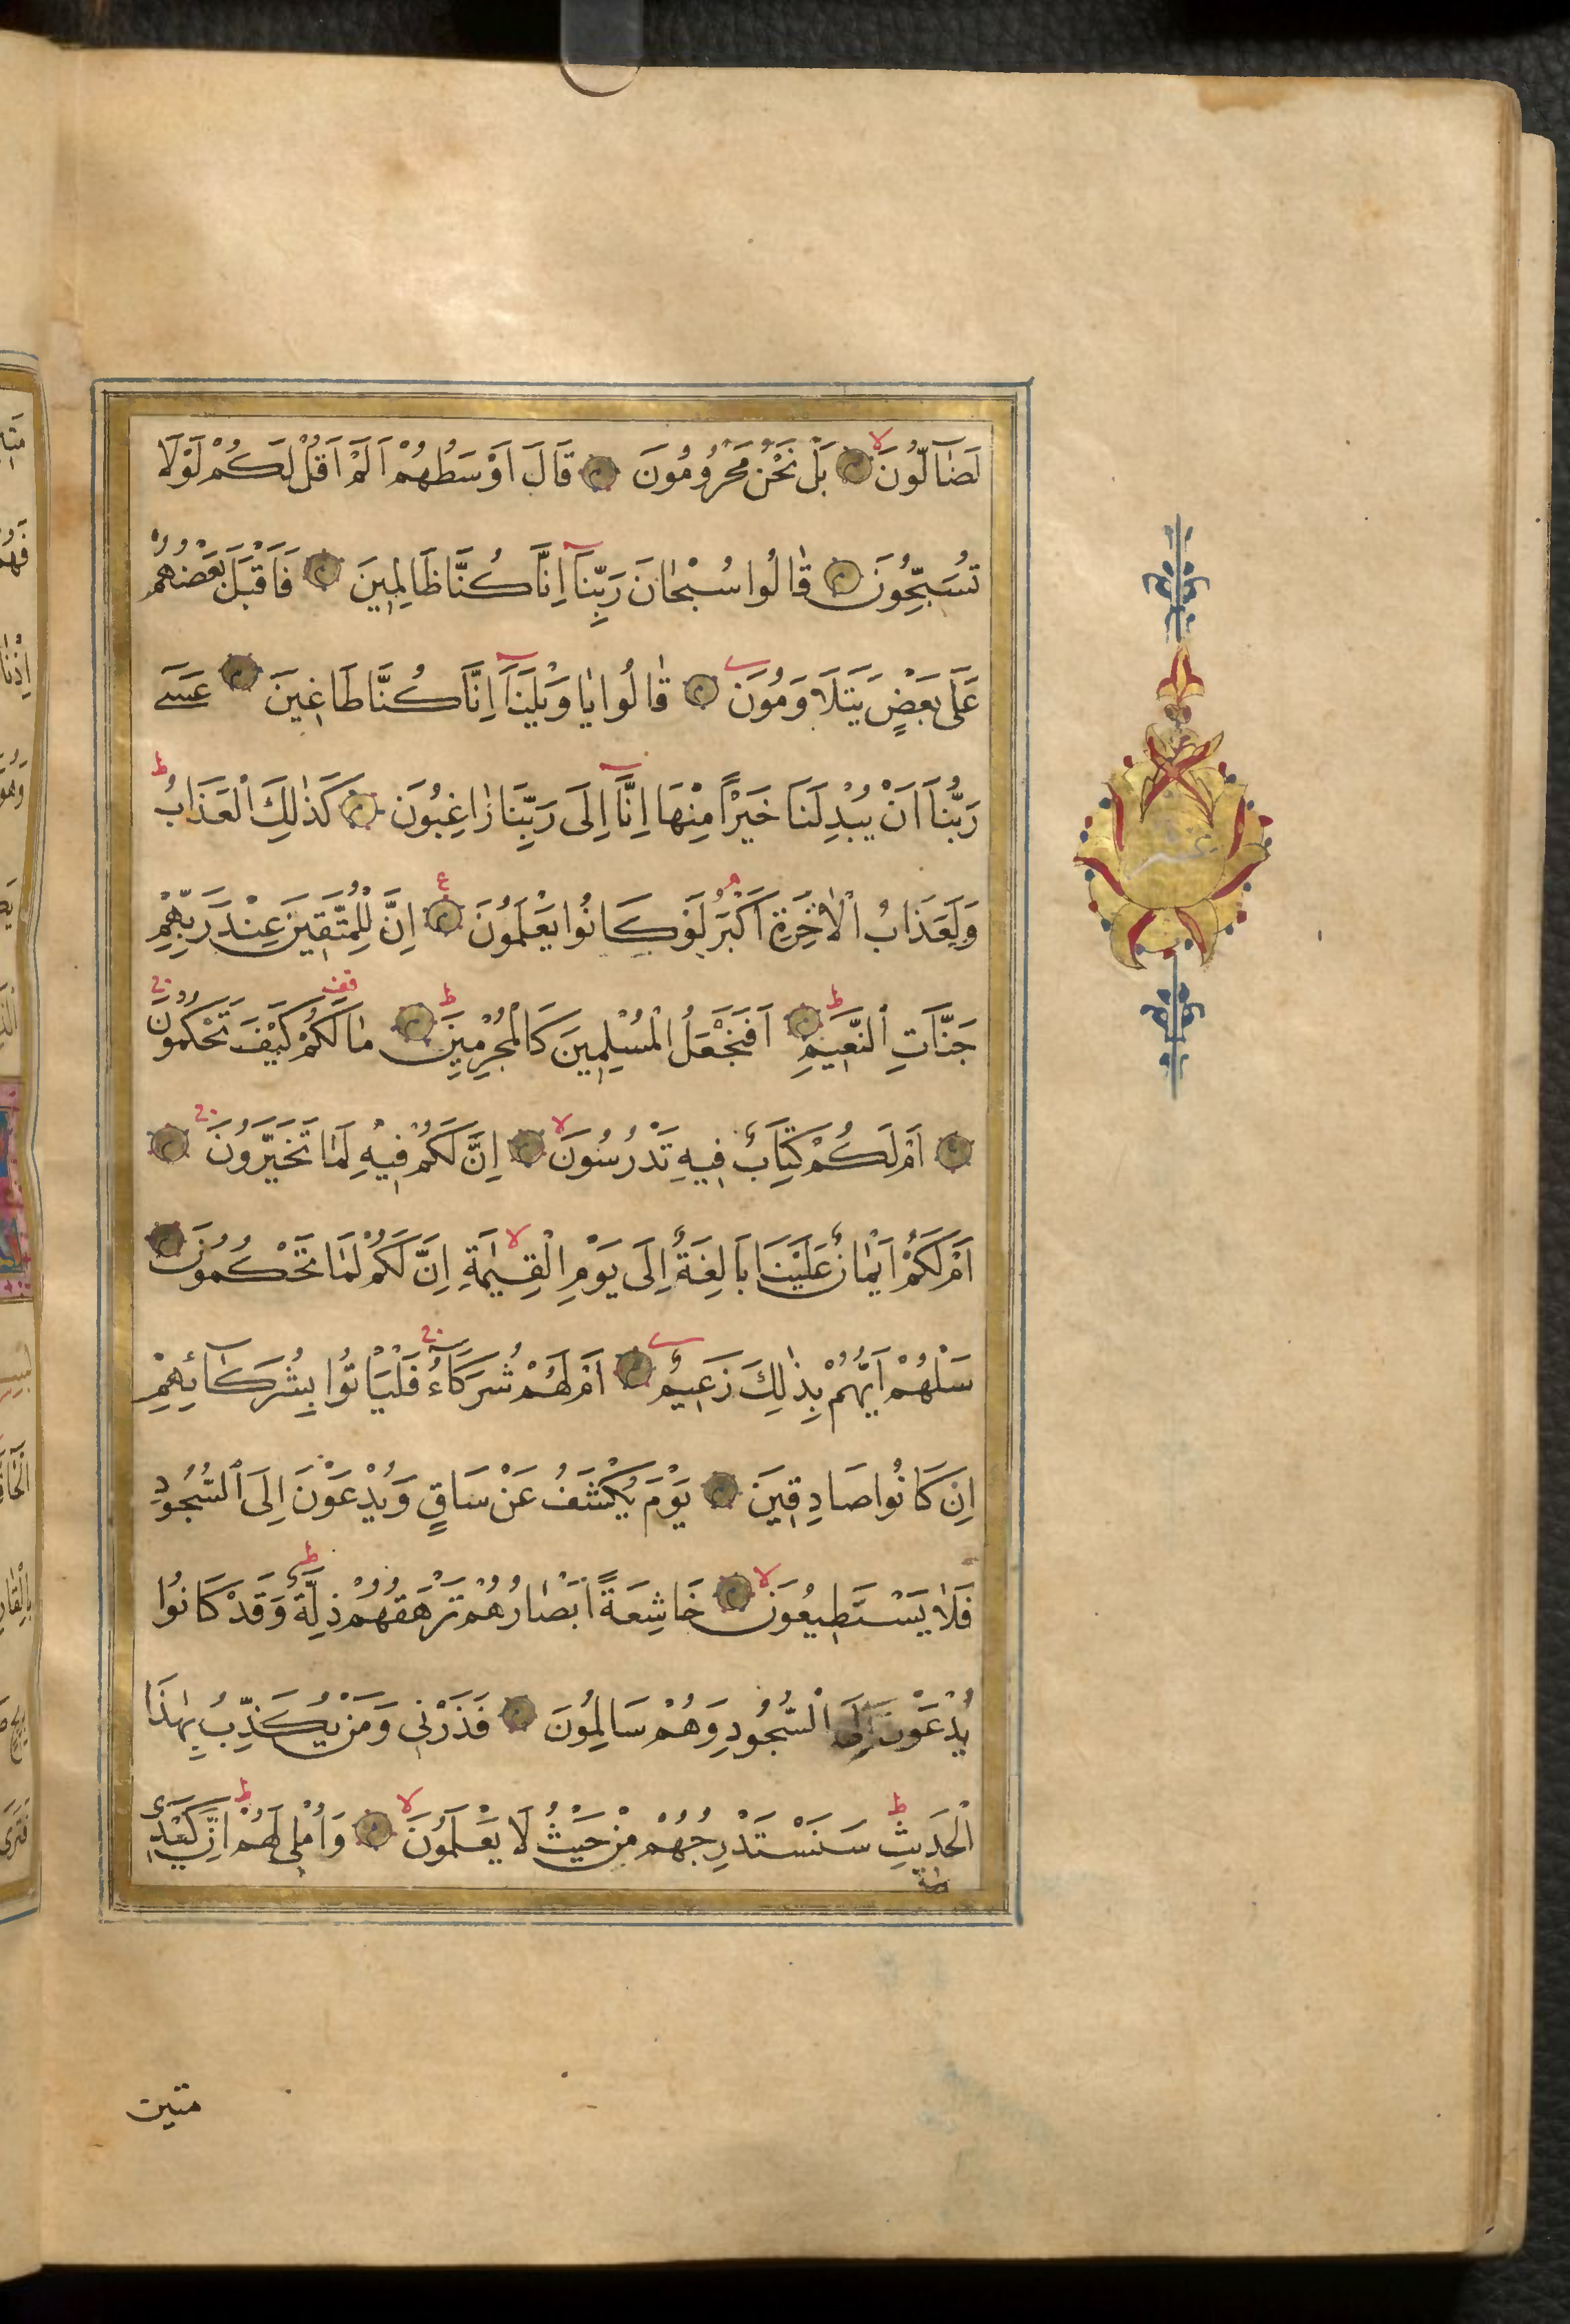 لَضَٓالُّونَ لا بَلْ نَحْنُ مَحْرُومُونَ قَالَ اَوْسَطُهُمْ اَلَمْ اَقُلْ لَكُمْ لَوْلَا
تُسَبِّحُونَ قَالُوا سُبْحَانَ رَبِّنَٓا اِنَّا كُنَّا ظَالِمِينَ فَاَقْبَلَ بَعْضُهُمْ
عَلَى بَعْضٍ يَتَلَاوَمُونَ قَالُوا يَا وَيْلَنَٓا اِنَّا كُنَّا طَاغِينَ عَسَى
رَبُّنَا اَنْ يُبْدِلَنَا خَيْرًا مِنْهَا اِنَّٓا اِلَى رَبِّنَا رَاغِبُونَ كَذٰلِكَ الْعَذَابُ ط
وَلَعَذَابُ الْاٰخِرَةِ اَكْبَرُ م لَوْ كَانُوا يَعْلَمُونَ ع اِنَّ لِلْمُتَّقِينَ عِنْدَ رَبِّهِمْ
جَنَّاتِ النَّعِيمِ ط اَفَنَجْعَلُ الْمُسْلِمِينَ كَالْمُجْرِمِينَ ط مَا لَكُمْ قف كَيْفَ تَحْكُمُونَ ج
اَمْ لَكُمْ كِتَابٌ فِيهِ تَدْرُسُونَ لا اِنَّ لَكُمْ فِيهِ لَمَا تَخَيَّرُونَ ج
اَمْ لَكُمْ اَيْمَانٌ عَلَيْنَا بَالِغَةٌ اِلَى يَوْمِ الْقِيٰمَةِ لا اِنَّ لَكُمْ لَمَا تَحْكُمُونَ
سَلْهُمْ اَيُّهُمْ بِذٰلِكَ زَعِيمٌ اَمْ لَهُمْ شُرَكَٓاءُ ج فَلْيَاْتُوا بِشُرَكَٓائِهِمْ
اِنْ كَانُوا صَادِقِينَ يَوْمَ يُكْشَفُ عَنْ سَاقٍ وَيُدْعَوْنَ اِلَى السُّجُودِ
فَلَا يَسْتَطِيعُونَ لا خَاشِعَةً اَبْصَارُهُمْ تَرْهَقُهُمْ ذِلَّةٌ ط وَقَدْ كَانُوا
يُدْعَوْنَ اِلَى السُّجُودِ وَهُمْ سَالِمُونَ فَذَرْنِي وَمَنْ يُكَذِّبُ بِهٰذَا
الْحَدِيثِ ط سَنَسْتَدْرِجُهُمْ مِنْ حَيْثُ لَا يَعْلَمُونَ لا وَاُمْلِي لَهُمْ ط اِنَّ كَيْدِي
متين